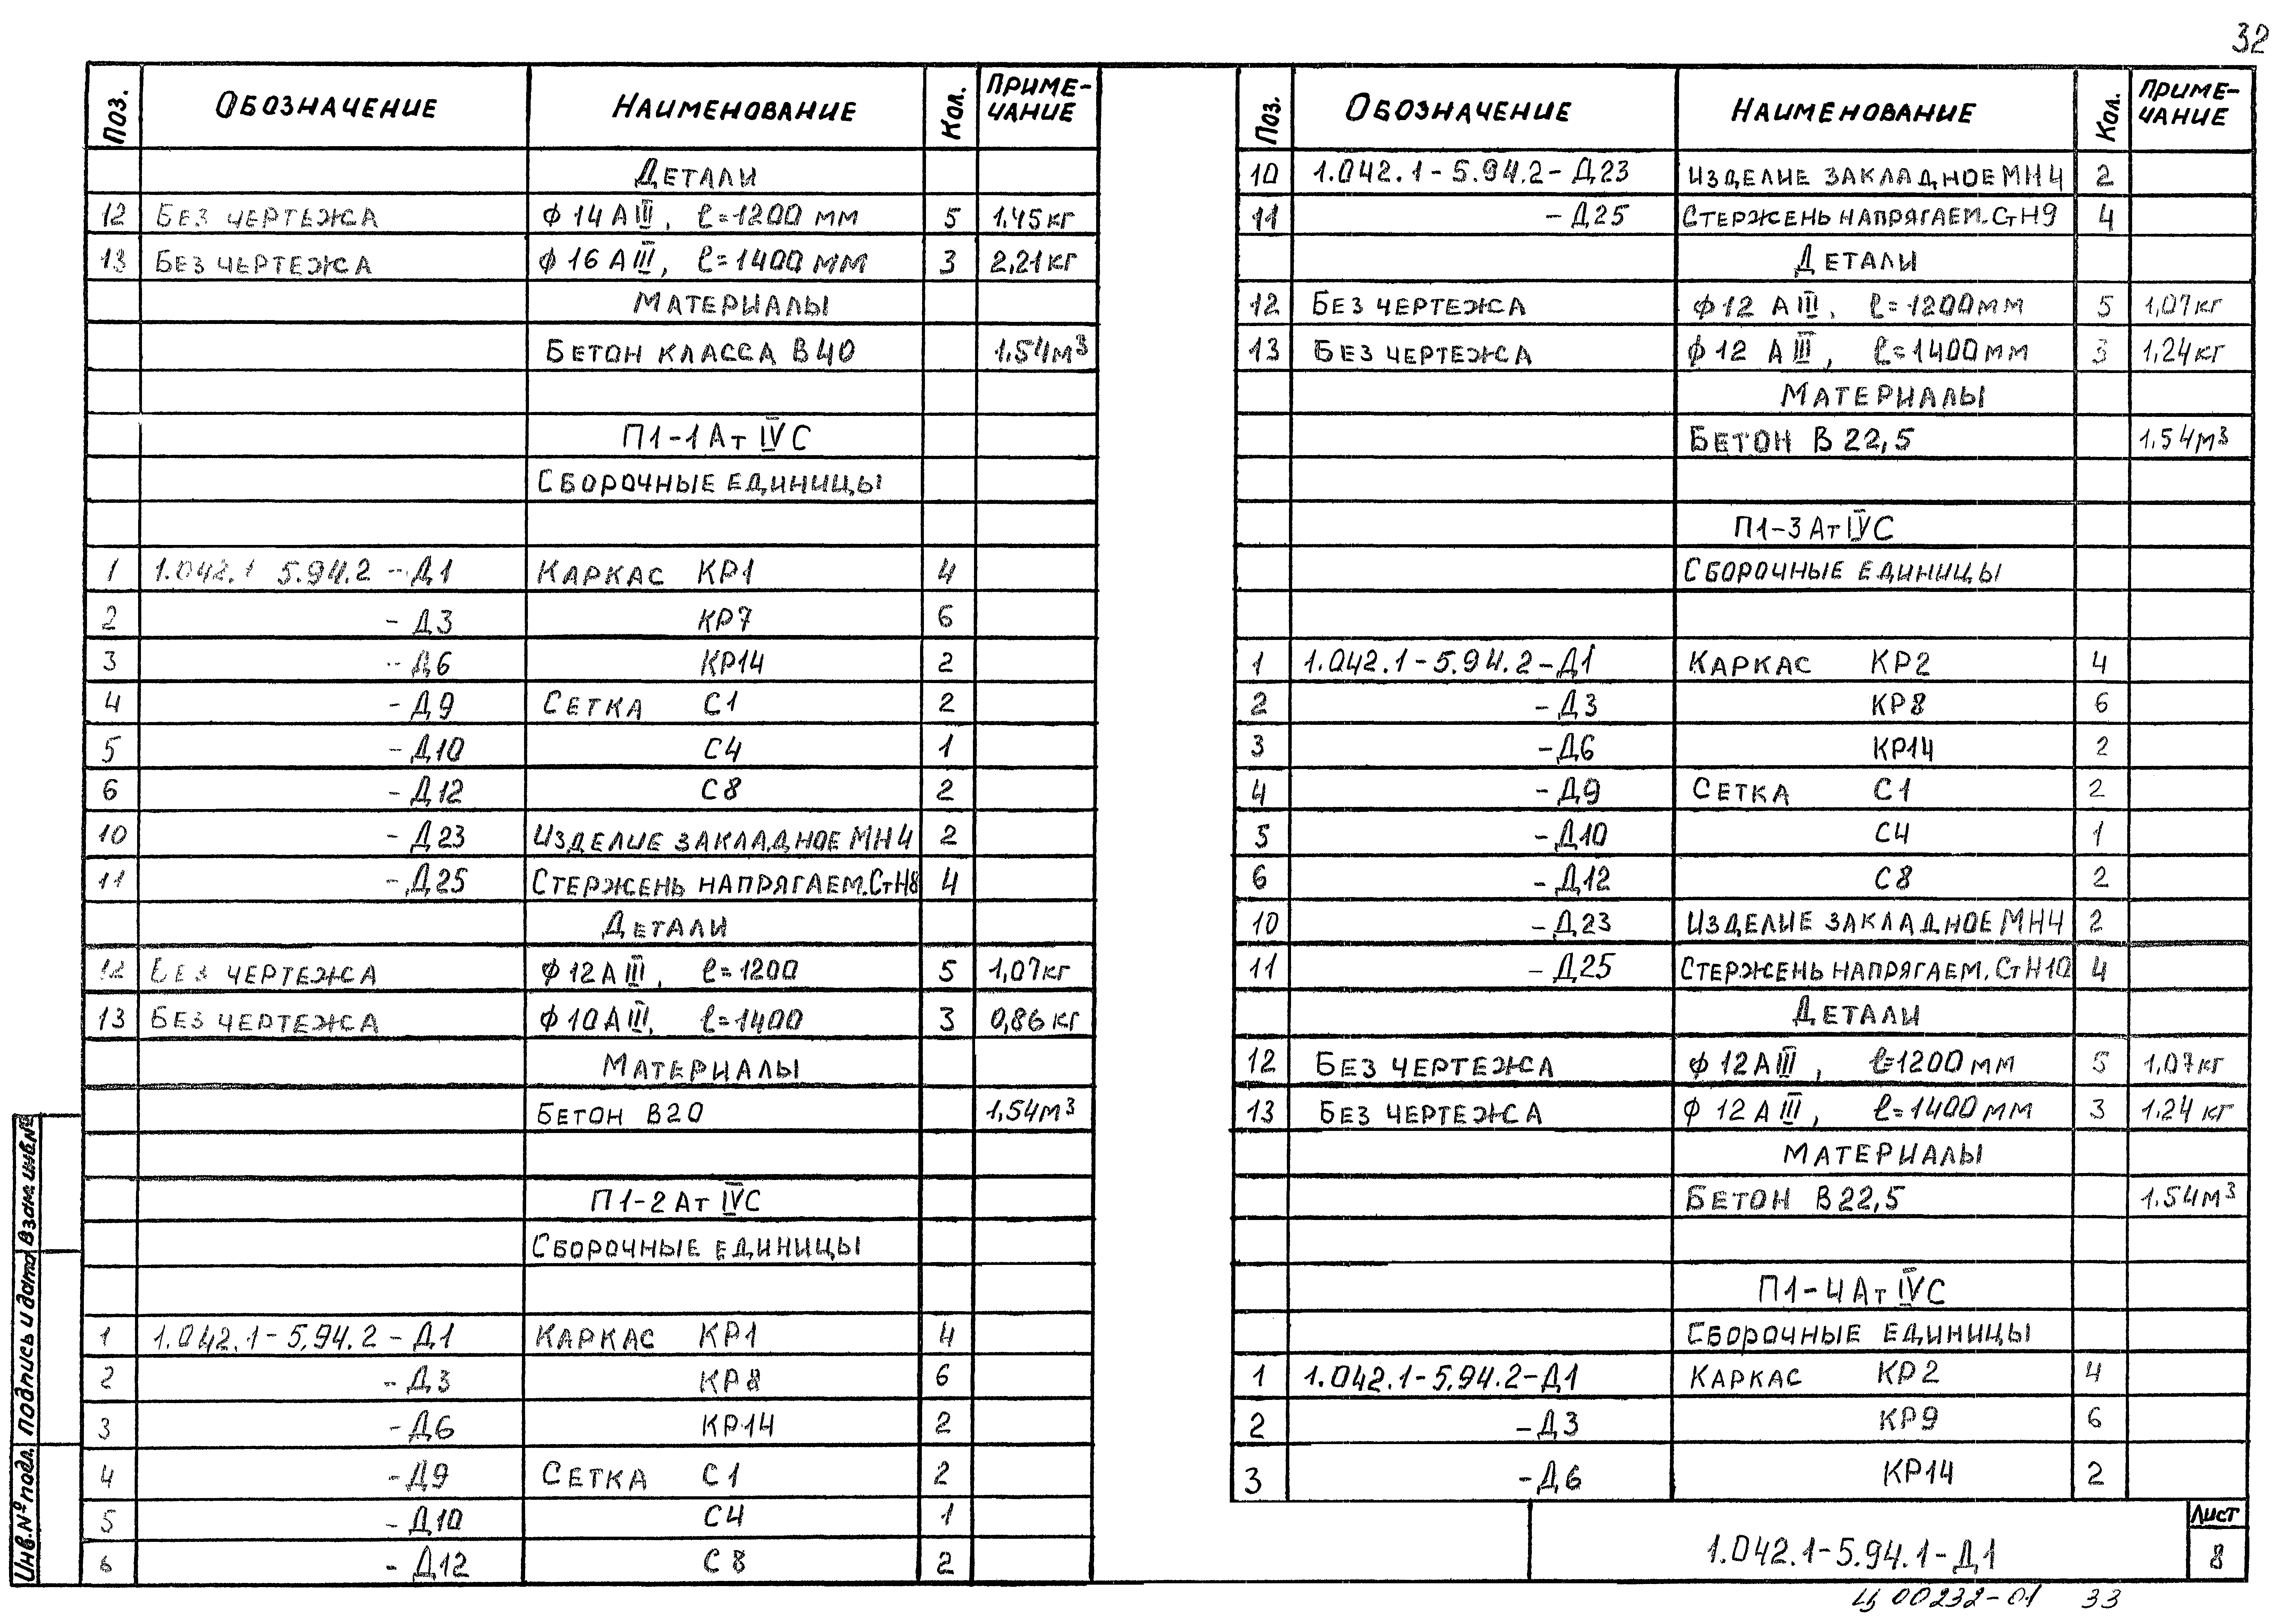 32
Поз. Обозначение Наименование Кол. Приме-чание
Детали
12 Без чертежа ф 14 А III, ℓ=1200 мм 5 1,45 кг
13 Без чертежа ф 16 А III, ℓ=1400 мм 3 2,21 кг
Материалы
Бетон класса В40 1.54 м³
П1-1 Ат IV С
Сборочные единицы
1 1.042.1 5.94.2 - Д1 Каркас КР1 4
2 - Д3 КР7 6
3 - Д6 КР14 2
4 - Д9 Сетка С1 2
5 - Д10 С4 1
6 - Д12 С8 2
10 - Д23 Изделие закладное МН4 2
11 - Д25 Стержень напрягаем. СтН8 4
Детали
12 Без чертежа ф 12 А III, ℓ=1200 5 1,07 кг
13 Без чертежа ф 10 А III, ℓ=1400 3 0,86 кг
Материалы
Бетон В20 1,54 м³
П1-2 Ат IV С
Сборочные единицы
1 1.042.1-5.94.2 - Д1 Каркас КР1 4
2 - Д3 КР8 6
3 - Д6 КР14 2
4 - Д9 Сетка С1 2
5 - Д10 С4 1
6 - Д12 С8 2
Поз. Обозначение Наименование Кол. Приме-чание
10 1.042.1-5.94.2-Д23 Изделие закладное МН4 2
11 -Д25 Стержень напрягаем. СтН9 4
Детали
12 Без чертежа ф 12 А III, ℓ=1200 мм 5 1,07 кг
13 Без чертежа ф 12 А III, ℓ=1400 мм 3 1,24 кг
Материалы
Бетон В 22,5 1.54 м³
П1-3 Ат IV С
Сборочные единицы
1 1.042.1-5.94.2-Д1 Каркас КР2 4
2 - Д3 КР8 6
3 -Д6 КР14 2
4 - Д9 Сетка С1 2
5 -Д10 С4 1
6 -Д12 С8 2
10 -Д23 Изделие закладное МН4 2
11 -Д25 Стержень напрягаем. СтН10 4
Детали
12 Без чертежа ф 12 А III, ℓ=1200 мм 5 1,07 кг
13 Без чертежа ф 12 А III, ℓ=1400 мм 3 1.24 кг
Материалы
Бетон В22,5 1.54 м³
П1-4 Ат IV С
Сборочные единицы
1 1.042.1-5.94.2-Д1 Каркас КР2 4
2 -Д3 КР9 6
3 -Д6 КР14 2
Инв. № подл. Подпись и дата Взам. инв. №
1.042.1-5.94.1-Д1
Лист
8
Ц00232-01 33